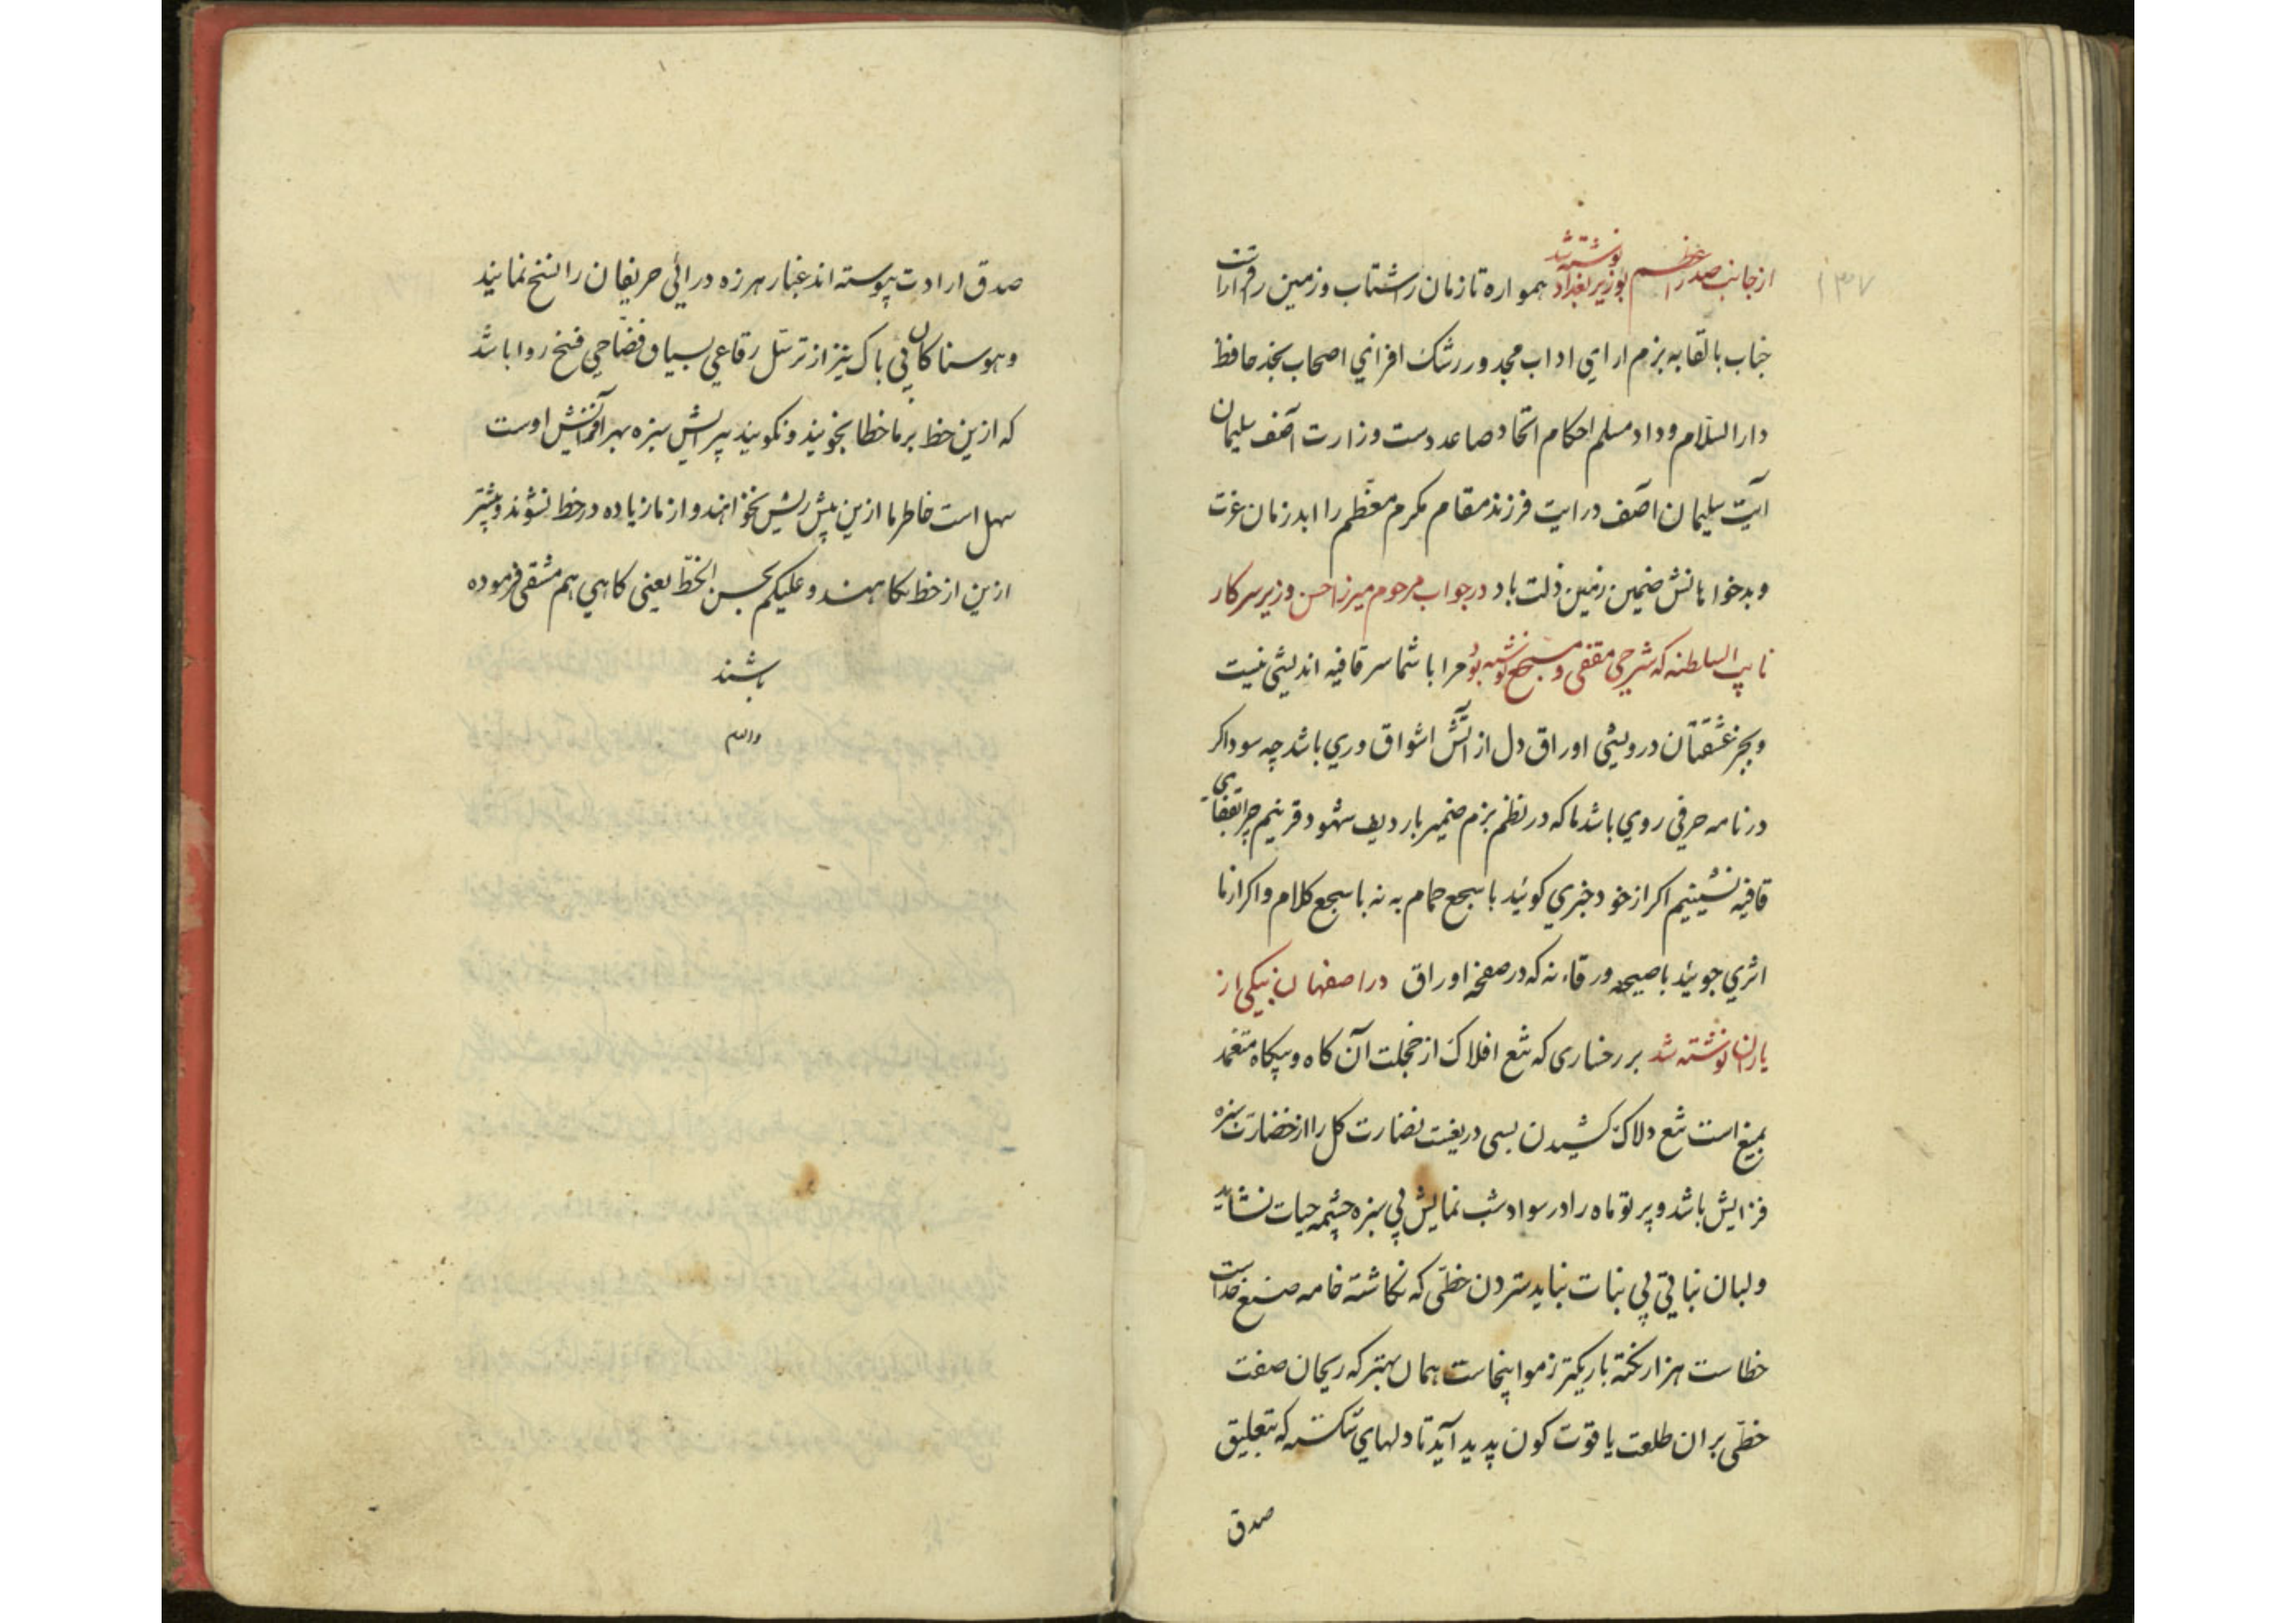 ۱۳۷
از جانب صدر اعظم بوزیر بغداد نوشته شد همواره تا زمان را شتاب و زمین را قرار است
جناب بالقابه بزم ارای اداب مجد و رشک افزای اصحاب نجد حافظ
دار السلام وداد مسلم احکام اتحاد صاعد دست وزارت آصف سلیمان
آیت سلیمان اصف درایت فرزند مقام مکرم معظم را ابد زمان عزت
و بدخواهانش ضمین زمین ذلت باد در جواب مرحوم میرزا حسن وزیر سرکار
نایب السلطنه که شرحی مقفی و مسجع نوشته بود مرا با شما سر قافیه اندیشی نیست
و بجز عشقتان در و پیشی اوراق دل از آتش اشواق وری باشد چه سود اکر
در نامه حرفی روی باشد ما که در نظم بزم ضمیر با ردیف شهود قرینیم چرا بقفای
قافیه نشینیم اکر از خود خبری کوئید با سجع حمام به نه با سجع کلام و اکر از ما
اثری جوئید با صیحه ورقاء نه که در صفحه اوراق در اصفهان بیکی از
یاران نوشته شد بر رخساری که تیغ افلاک از خجلت آن کاه و بیکاه متغمد
بمیغ است تیغ دلاک کشیدن بسی دریغست نضارت کل را از خضارت سبزه
فزایش باشد و پرتو ماه را در سواد شب نمایش پی سبزه چشمه حیات نشاید
و لبان نباتی پی نبات نباید ستردن خطی که نکاشته خامه صنع خداست
خطاست هزار نکته باریکتر ز مو اینجاست همان بهتر که ریحان صفت
خطی بران طلعت یاقوت کون پدید آید تا دلهای شکسته که بتعلیق
صدق
صدق ارادت پیوسته اند غبار هرزه درائی حریفان را نسخ نمایند
و هوسناکان بی باک نیز از ترسل رقاعی بسیاق فضاحی فسخ روا باشد
که ازین خط بر ما خطا نجویند و نکویند پیرایش سبزه بهر آفتش اوست
سهل است خاطر ما ازین پیش ریش نخواهند و از ما زیاده در خط نشوند و بیشتر
ازین از خط نکاهند و علیکم بحسن الخط یعنی کاهی هم مشقی فرموده
باشند
والسلام